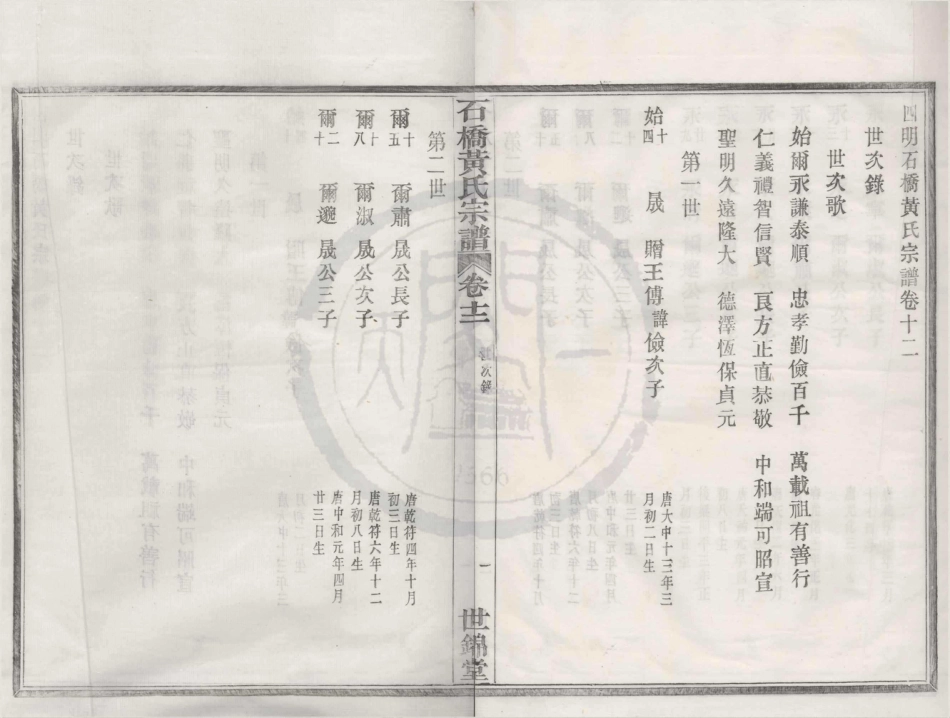 四明石橋黃氏宗譜卷十二
世次錄
世次歌
始爾永謙泰順　忠孝勤儉百千　萬載祖有善行
仁義禮智信賢　良方正直恭敬　中和端可昭宣
聖明久遠隆大　德澤恆保貞元
第一世
始十四　晟　贈王傅諱儉次子　唐大中十三年三月初二日生
石橋黃氏宗譜　卷十二　世次錄　一　世錦堂
第二世
爾十五　爾肅　晟公長子　唐乾符四年十月初三日生
爾十八　爾淑　晟公次子　唐乾符六年十二月初八日生
爾二十　爾邈　晟公三子　唐中和元年四月廿三日生